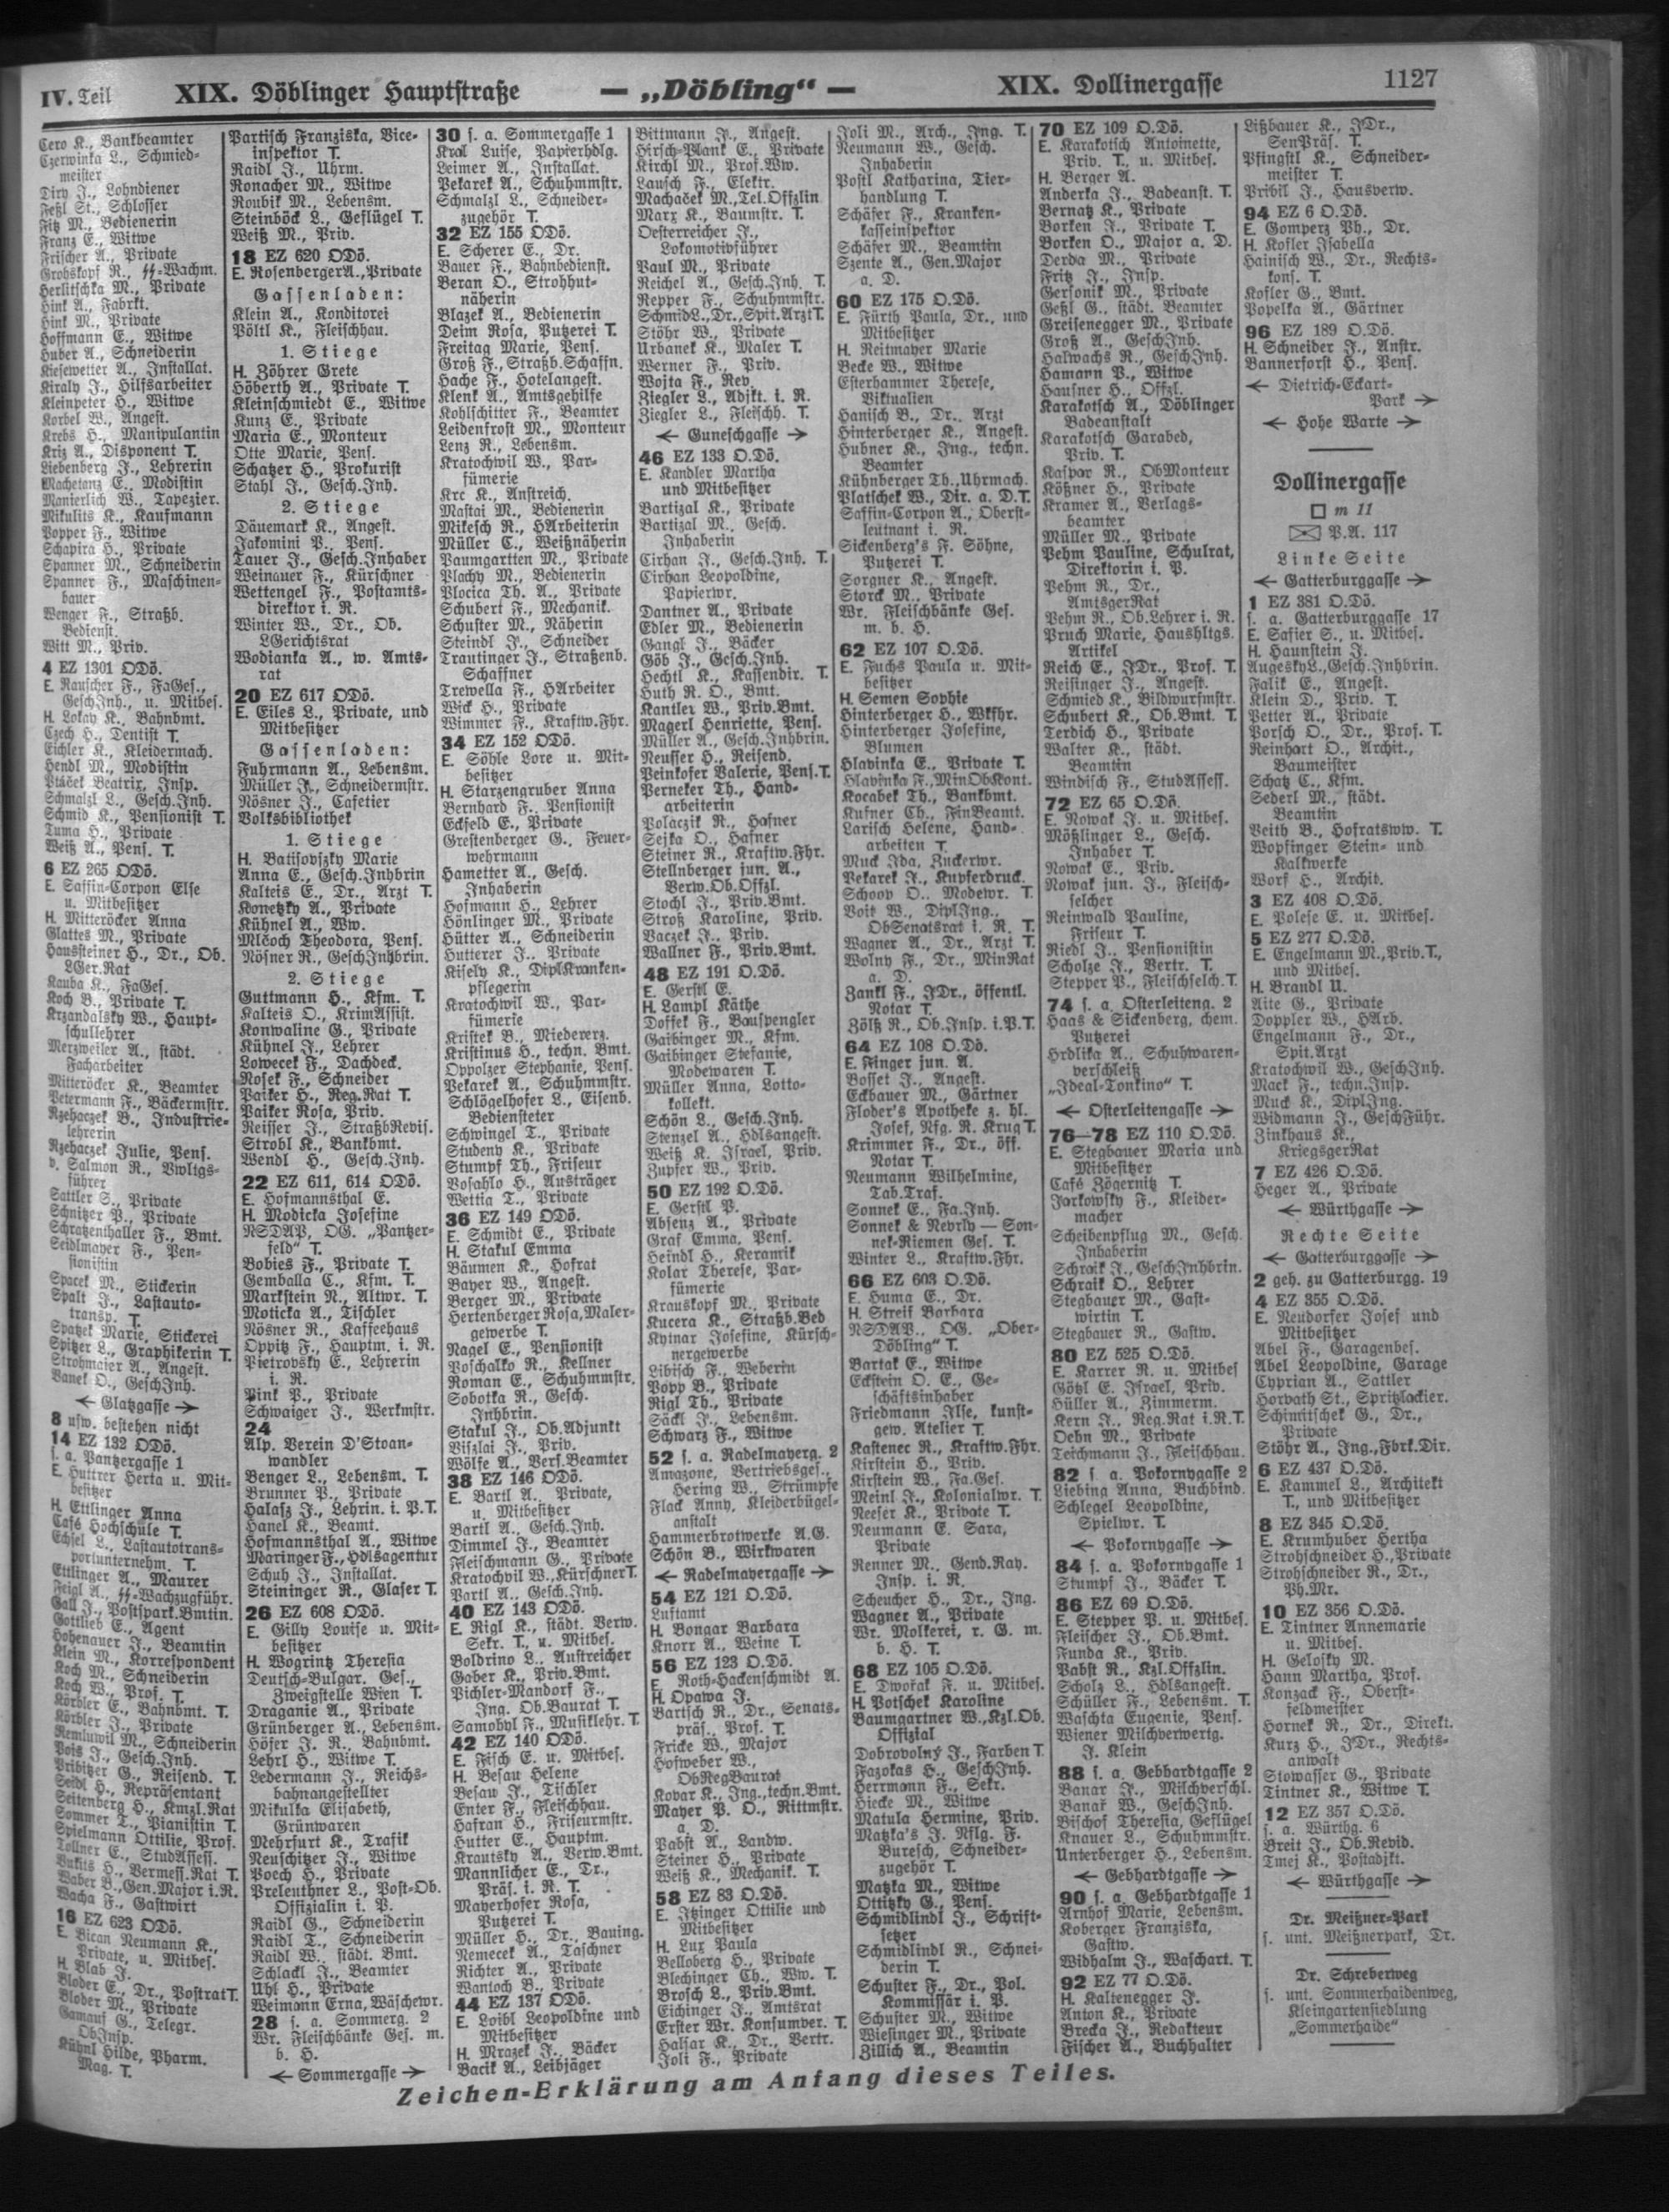 IV. Teil
XIX. Döblinger Hauptstraße
— „Döbling“ —
XIX. Dollinergasse
1127
Cero K., Bankbeamter
Czerwinka L., Schmied-
meister
Diry J., Lohndiener
Feßl St., Schlosser
Fitz M., Bedienerin
Franz E., Witwe
Frischer A., Private
Grobskopf R., SS-Wachm.
Herlitschka M., Private
Hink A., Fabrkt.
Hink M., Private
Hoffmann E., Witwe
Huber A., Schneiderin
Kiesewetter A., Installat.
Kiraly J., Hilfsarbeiter
Kleinpeter H., Witwe
Korbel W., Angest.
Krebs H., Manipulantin
Kriz A., Disponent T.
Liebenberg J., Lehrerin
Machetanz E., Modistin
Manierlich W., Tapezier.
Mikulits K., Kaufmann
Popper F., Witwe
Schapira H., Private
Spanner M., Schneiderin
Spanner F., Maschinen-
bauer
Wenger F., Straßb.
Bedienst.
Witt M., Priv.
4 EZ 1301 ODö.
E. Rauscher F., FaGes.,
GeschInh., u. Mitbes.
H. Lokay K., Bahnbmt.
Czech H., Dentist T.
Eichler K., Kleidermach.
Hendl M., Modistin
Ptáček Beatrix, Insp.
Schmalzl L., Gesch.Inh.
Schmid K., Pensionist T.
Tuma H., Private
Weiß A., Pens. T.
6 EZ 265 ODö.
E. Saffin-Corpon Else
u. Mitbesitzer
H. Mitteröcker Anna
Glattes M., Private
Haussteiner H., Dr., Ob.
LGer.Rat
Kauba K., FaGes.
Koch B., Private T.
Krzandalsky W., Haupt-
schullehrer
Merzweiler A., städt.
Facharbeiter
Mitteröcker K., Beamter
Petermann F., Bäckermstr.
Rzehaczek B., Industrie-
lehrerin
Rzehaczek Julie, Pens.
v. Salmon R., Vwltgs-
führer
Sattler S., Private
Schnitzer P., Private
Schratzenthaller F., Bmt.
Seidlmayer F., Pen-
sionistin
Spacek M., Stickerin
Spalt J., Lastauto-
transp. T.
Spatzek Marie, Stickerei
Spitzer L., Graphikerin T.
Strohmaier A., Angest.
Vanek O., GeschInh.
← Glatzgasse →
8 usw. bestehen nicht
14 EZ 132 ODö.
s. a. Pantzergasse 1
E. Huttrer Herta u. Mit-
besitzer
H. Ettlinger Anna
Café Hochschule T.
Echsel L., Lastautotrans-
portunternehm. T.
Ettlinger A., Maurer
Feigl A., SS-Wachzugführ.
Gall J., Postspark.Bmtin.
Gottlieb E., Agent
Hohenauer J., Beamtin
Klein M., Korrespondent
Koch M., Schneiderin
Koch W., Prof. T.
Körbler E., Bahnbmt. T.
Körbler J., Private
Nemluwil M., Schneiderin
Pois J., Gesch.Inh.
Pribitzer G., Reisend. T.
Seidl H., Repräsentant
Seitenberg H., Kmzl.Rat
Sommer T., Pianistin T.
Spielmann Ottilie, Prof.
Tollner E., StudAssess.
Vukits H., Vermess.Rat T.
Waber B., Gen.Major i.R.
Wacha F., Gastwirt
16 EZ 623 ODö.
E. Bican Neumann K.,
Private, u. Mitbes.
H. Blab J.
Bloder E., Dr., PostratT.
Bloder M., Private
Gamauf G., Telegr.
ObInsp.
Kühnl Hilde, Pharm.
Mag. T.
Partisch Franziska, Vice-
inspektor T.
Raidl J., Uhrm.
Ronacher M., Witwe
Roubik M., Lebensm.
Steinböck L., Geflügel T.
Weiß M., Priv.
18 EZ 620 ODö.
E. Rosenberger A., Private
Gassenladen:
Klein A., Konditorei
Pöltl K., Fleischhau.
1. Stiege
H. Zöhrer Grete
Höberth A., Private T.
Kleinschmiedt E., Witwe
Kunz E., Private
Maria E., Monteur
Otte Marie, Pens.
Schatzer H., Prokurist
Stahl J., Gesch.Inh.
2. Stiege
Däuemark K., Angest.
Jakomini P., Pens.
Tauer J., Gesch.Inhaber
Weinauer F., Kürschner
Wettengel F., Postamts-
direktor i. R.
Winter W., Dr., Ob.
LGerichtsrat
Wodianka A., w. Amts-
rat
20 EZ 617 ODö.
E. Eiles L., Private, und
Mitbesitzer
Gassenladen:
Fuhrmann A., Lebensm.
Müller J., Schneidermstr.
Nösner J., Cafetier
Volksbibliothek
1. Stiege
H. Batisovszky Marie
Anna E., Gesch.Inhbrin
Kalteis E., Dr., Arzt T.
Konetzky A., Private
Kühnel A., Ww.
Mlčoch Theodora, Pens.
Nösner R., GeschInhbrin.
2. Stiege
Guttmann H., Kfm. T.
Kalteis O., KrimAssist.
Konwaline G., Private
Kühnel J., Lehrer
Lowecek F., Dachdeck.
Nosek F., Schneider
Paiker H., Reg.Rat T.
Paiker Rosa, Priv.
Reisser J., StraßbRevis.
Strobl K., Bankbmt.
Wendl H., Gesch.Inh.
22 EZ 611, 614 ODö.
E. Hofmannsthal E.
H. Modicka Josefine
NSDAP, OG. „Pantzer-
feld“ T.
Bobies F., Private T.
Gemballa C., Kfm. T.
Markstein N., Altwr. T.
Moticka A., Tischler
Nösner R., Kaffeehaus
Oppitz F., Hauptm. i. R.
Pietrovsky E., Lehrerin
i. R.
Pink P., Private
Schwaiger J., Werkmstr.
24
Alp. Verein D'Stoan-
wandler
Benger L., Lebensm. T.
Brunner P., Private
Halasz J., Lehrin. i. P.T.
Hanel K., Beamt.
Hofmannsthal A., Witwe
Maringer F., Hdlsagentur
Schuh J., Installat.
Steininger R., Glaser T.
26 EZ 608 ODö.
E. Gilly Louise u. Mit-
besitzer
H. Wogrintz Theresia
Deutsch-Bulgar. Ges.,
Zweigstelle Wien T.
Draganie A., Private
Grünberger A., Lebensm.
Höfer J. R., Bahnbmt.
Lehrl H., Witwe T.
Ledermann J., Reichs-
bahnangestellter
Mikulka Elisabeth,
Grünwaren
Mehrfurt K., Trafik
Neuschitzer J., Witwe
Poech H., Private
Preleuthner L., Post-Ob.
Offizialin i. P.
Raidl G., Schneiderin
Raidl T., Schneiderin
Raidl W., städt. Bmt.
Schlackl J., Beamter
Uhl H., Private
Weimann Erna, Wäschewr.
28 s. a. Sommerg. 2
Wr. Fleischbänke Ges. m.
b. H.
← Sommergasse →
30 s. a. Sommergasse 1
Kral Luise, Papierhdlg.
Leimer A., Installat.
Pekarek A., Schuhmmstr.
Schmalzl L., Schneider-
zugehör T.
32 EZ 155 ODö.
E. Scherer E., Dr.
Bauer F., Bahnbedienst.
Beran O., Strohhut-
näherin
Blazek A., Bedienerin
Deim Rosa, Putzerei T.
Freitag Marie, Pens.
Groß F., Straßb.Schaffn.
Hache F., Hotelangest.
Klenk A., Amtsgehilfe
Kohlschitter F., Beamter
Leidenfrost M., Monteur
Lenz R., Lebensm.
Kratochwil W., Par-
fümerie
Krc K., Anstreich.
Mastai M., Bedienerin
Mikesch R., HArbeiterin
Müller C., Weißnäherin
Paumgartten M., Private
Plachy M., Bedienerin
Plocica Th. A., Private
Schubert F., Mechanik.
Schuster M., Näherin
Steindl J., Schneider
Trautinger J., Straßenb.
Schaffner
Trewella F., HArbeiter
Wick H., Private
Wimmer F., Kraftw.Fhr.
34 EZ 152 ODö.
E. Söhle Lore u. Mit-
besitzer
H. Starzengruber Anna
Bernhard F., Pensionist
Eckfeld E., Private
Grestenberger G., Feuer-
wehrmann
Hametter A., Gesch.
Inhaberin
Hofmann H., Lehrer
Hönlinger M., Private
Hütter A., Schneiderin
Hutterer J., Private
Kisely K., DiplKranken-
pflegerin
Kratochwil W., Par-
fümerie
Kristek B., Miedererz.
Kristinus H., techn. Bmt.
Oppolzer Stephanie, Pens.
Pekarek A., Schuhmmstr.
Schlögelhofer L., Eisenb.
Bediensteter
Schwingel T., Private
Studeny K., Private
Stumpf Th., Friseur
Vosahlo H., Austräger
Wettia T., Private
36 EZ 149 ODö.
E. Schmidt E., Private
H. Stakul Emma
Bäumen K., Hofrat
Bayer W., Angest.
Berger M., Private
Hertenberger Rosa, Maler-
gewerbe T.
Nagel E., Pensionist
Poschalko R., Kellner
Roman E., Schuhmmstr.
Sobotka R., Gesch.
Inhbrin.
Stakul J., Ob.Adjunkt
Viszlai J., Priv.
Wölfe A., Vers.Beamter
38 EZ 146 ODö.
E. Bartl A., Private,
u. Mitbesitzer
Bartl A., Gesch.Inh.
Dimmel J., Beamter
Fleischmann G., Private
Kratochvil W., Kürschner T.
Partl A., Gesch.Inh.
40 EZ 143 ODö.
E. Rigl K., städt. Verw.
Sekr. T., u. Mitbes.
Boldrino L., Anstreicher
Gaber K., Priv.Bmt.
Pichler-Mandorf F.,
Ing. Ob.Baurat T.
Samobyl F., Musiklehr. T.
42 EZ 140 ODö.
E. Fisch E. u. Mitbes.
H. Besau Helene
Besau J., Tischler
Enter F., Fleischhau.
Hafran H., Friseurmstr.
Hutter E., Hauptm.
Krautsky A., Verw.Bmt.
Mannlicher E., Dr.,
Präs. i. R. T.
Mayerhofer Rosa,
Putzerei T.
Müller H., Dr., Bauing.
Nemecek A., Taschner
Richter A., Private
Wantoch B., Private
44 EZ 137 ODö.
E. Loibl Leopoldine und
Mitbesitzer
H. Mrazek J., Bäcker
Bacik A., Leibjäger
Bittmann J., Angest.
Hirsch-Plank E., Private
Kirchl M., Prof.Ww.
Lausch F., Elektr.
Machaček M., Tel.Offzlin.
Marx K., Baumstr. T.
Oesterreicher J.,
Lokomotivführer
Paul M., Private
Reichel A., Gesch.Inh. T.
Repper F., Schuhmmstr.
Schmid L., Dr., Spit.Arzt T.
Stöhr W., Private
Urbanek K., Maler T.
Werner F., Priv.
Wojta F., Rev.
Ziegler L., Adjkt. i. R.
Ziegler L., Fleischh. T.
← Guneschgasse →
46 EZ 133 O.Dö.
E. Kandler Martha
und Mitbesitzer
Bartizal K., Private
Bartizal M., Gesch.
Inhaberin
Cirhan J., Gesch.Inh. T.
Cirhan Leopoldine,
Papierwr.
Dantner A., Private
Edler M., Bedienerin
Gangl J., Bäcker
Göb J., Gesch.Inh.
Hechtl K., Kassendir. T.
Huth R. O., Bmt.
Kantler W., Priv.Bmt.
Magerl Henriette, Pens.
Müller A., Gesch.Inhbrin.
Neusser H., Reisend.
Peinkofer Valerie, Pens. T.
Perneker Th., Hand-
arbeiterin
Polaczik R., Hafner
Sejka O., Hafner
Steiner R., Kraftw.Fhr.
Stellnberger jun. A.,
Verw.Ob.Offzl.
Stochl J., Priv.Bmt.
Stroß Karoline, Priv.
Vaczek J., Priv.
Wallner F., Priv.Bmt.
48 EZ 191 O.Dö.
E. Gerstl E.
H. Lampl Käthe
Doffek F., Bauspengler
Gaibinger M., Kfm.
Gaibinger Stefanie,
Modewaren T.
Müller Anna, Lotto-
kollekt.
Schön L., Gesch.Inh.
Stenzel A., Hdlsangest.
Weiß K. Israel, Priv.
Zupfer W., Priv.
50 EZ 192 O.Dö.
E. Gerstl P.
Absenz A., Private
Graf Emma, Pens.
Heindl H., Keramik
Kolar Therese, Par-
fümerie
Krauskopf M., Private
Kucera K., Straßb.Bed
Kytnar Josefine, Kürsch-
nergewerbe
Libisch F., Weberin
Popp B., Private
Rigl Th., Private
Säckl J., Lebensm.
Schwarz F., Witwe
52 s. a. Radelmayerg. 2
Amazone, Vertriebsges.,
Hering W., Strümpfe
Flack Anny, Kleiderbügel-
anstalt
Hammerbrotwerke A.G.
Schön B., Wirkwaren
← Radelmayergasse →
54 EZ 121 O.Dö.
Luftamt
H. Bongar Barbara
Knorr A., Weine T.
56 EZ 123 O.Dö.
E. Roth-Hackenschmidt A.
H. Opawa J.
Bartsch R., Dr., Senats-
präs., Prof. T.
Fricke W., Major
Hofweber W.,
ObRegBaurat
Kovar K., Ing., techn.Bmt.
Mayer P. O., Rittmstr.
a. D.
Pabst A., Landw.
Steiner H., Private
Weiß K., Mechanik. T.
58 EZ 83 O.Dö.
E. Itzinger Ottilie und
Mitbesitzer
H. Lux Paula
Belloberg H., Private
Blechinger Ch., Ww. T.
Brosch L., Priv.Bmt.
Eichinger J., Amtsrat
Erster Wr. Konsumver. T.
Halsar K., Dr., Vertr.
Joli F., Private
Joli M., Arch., Ing. T.
Neumann W., Gesch.
Inhaberin
Postl Katharina, Tier-
handlung T.
Schäfer F., Kranken-
kasseinspektor
Schäfer M., Beamtin
Szente A., Gen.Major
a. D.
60 EZ 175 O.Dö.
E. Fürth Paula, Dr., und
Mitbesitzer
H. Reitmayer Marie
Becke W., Witwe
Esterhammer Therese,
Viktualien
Hanisch B., Dr., Arzt
Hinterberger K., Angest.
Hubner K., Ing., techn.
Beamter
Kühnberger Th., Uhrmach.
Platschek W., Dir. a. D. T.
Saffin-Corpon A., Oberst-
leutnant i. R.
Sickenberg's F. Söhne,
Putzerei T.
Sorgner K., Angest.
Storck M., Private
Wr. Fleischbänke Ges.
m. b. H.
62 EZ 107 O.Dö.
E. Fuchs Paula u. Mit-
besitzer
H. Semen Sophie
Hinterberger H., Wkfhr.
Hinterberger Josefine,
Blumen
Hlavinka E., Private T.
Hlavinka F., MinObKont.
Kocabek Th., Bankbmt.
Kufner Ch., FinBeamt.
Larisch Helene, Hand-
arbeiten T.
Muck Ida, Zuckerwr.
Pekarek J., Kupferdruck.
Schoop O., Modewr. T.
Voit W., DiplIng.,
ObSenatsrat i. R. T.
Wagner A., Dr., Arzt T.
Wolny F., Dr., MinRat
a. D.
Zankl F., JDr., öffentl.
Notar T.
Zölß R., Ob.Insp. i.P.T.
64 EZ 108 O.Dö.
E. Finger jun. A.
Bosset J., Angest.
Eckbauer M., Gärtner
Floder's Apotheke z. hl.
Josef, Nfg. R. Krug T.
Krimmer F., Dr., öff.
Notar T.
Neumann Wilhelmine,
Tab.Traf.
Sonnek E., Fa.Inh.
Sonnek & Nevrly — Son-
nek-Riemen Ges. T.
Winter L., Kraftw.Fhr.
66 EZ 603 O.Dö.
E. Huma E., Dr.
H. Streif Barbara
NSDAP., OG. „Ober-
Döbling“ T.
Bartak E., Witwe
Eckstein O. E., Ge-
schäftsinhaber
Friedmann Ilse, kunst-
gew. Atelier T.
Kastenec R., Kraftw.Fhr.
Kirstein H., Priv.
Kirstein W., Fa.Ges.
Meinl J., Kolonialwr. T.
Neeser K., Private T.
Neumann E. Sara,
Private
Renner M., Gend.Ray.
Insp. i. R.
Scheucher H., Dr., Ing.
Wagner A., Private
Wr. Molkerei, r. G. m.
b. H. T.
68 EZ 105 O.Dö.
E. Dwořak F. u. Mitbes.
H. Potschek Karoline
Baumgartner W., Kzl.Ob.
Offizial
Dobrovolný J., Farben T.
Fazokas H., GeschInh.
Herrmann F., Sekr.
Hiecke M., Witwe
Matula Hermine, Priv.
Matzka's J. Nflg. F.
Buresch, Schneider-
zugehör T.
Matzka M., Witwe
Ottitzky G., Pens.
Schmidlindl J., Schrift-
setzer
Schmidlindl R., Schnei-
derin T.
Schuster F., Dr., Pol.
Kommissär i. P.
Schuster M., Witwe
Wiesinger M., Private
Zillich A., Beamtin
70 EZ 109 O.Dö.
E. Karakotsch Antoinette,
Priv. T., u. Mitbes.
H. Berger A.
Anderka J., Badeanst. T.
Bernatz K., Private
Borken J., Private T.
Borken O., Major a. D.
Derda M., Private
Fritz J., Insp.
Gersonik M., Private
Geßl G., städt. Beamter
Greisenegger M., Private
Groß A., GeschInh.
Halwachs R., GeschInh.
Hamann P., Witwe
Hausner H., Offzl.
Karakotsch A., Döblinger
Badeanstalt
Karakotsch Garabed,
Priv. T.
Kaspar R., ObMonteur
Kößner H., Private
Kramer A., Verlags-
beamter
Müller M., Private
Pehm Pauline, Schulrat,
Direktorin i. P.
Pehm R., Dr.,
AmtsgerRat
Pehm R., Ob.Lehrer i. R.
Pruch Marie, Haushltgs.
Artikel
Reich E., JDr., Prof. T.
Reisinger J., Angest.
Schmied K., Bildwurfmstr.
Schubert K., Ob.Bmt. T.
Terdich H., Private
Walter K., städt.
Beamtin
Windisch F., StudAssess.
72 EZ 65 O.Dö.
E. Nowak J. u. Mitbes.
Mößlinger L., Gesch.
Inhaber T.
Nowak E., Priv.
Nowak jun. J., Fleisch-
selcher
Reinwald Pauline,
Friseur T.
Riedl J., Pensionistin
Scholze J., Vertr. T.
Stepper P., Fleischselch. T.
74 s. a. Osterleiteng. 2
Haas & Sickenberg, chem.
Putzerei
Hrdlika A., Schuhwaren-
verschleiß
„Ideal-Tonkino“ T.
← Osterleitengasse →
76—78 EZ 110 O.Dö.
E. Stegbauer Maria und
Mitbesitzer
Café Zögernitz T.
Jarkowsky F., Kleider-
macher
Scheibenpflug M., Gesch.
Inhaberin
Schraik J., GeschInhbrin.
Schraik O., Lehrer
Stegbauer M., Gast-
wirtin T.
Stegbauer R., Gastw.
80 EZ 525 O.Dö.
E. Karrer R. u. Mitbes
Götzl E. Israel, Priv.
Hüller A., Zimmerm.
Kern J., Reg.Rat i.R.T.
Oehn M., Private
Teichmann J., Fleischhau.
82 s. a. Pokornygasse 2
Liebing Anna, Buchbind.
Schlegel Leopoldine,
Spielwr. T.
← Pokornygasse →
84 s. a. Pokornygasse 1
Stumpf J., Bäcker T.
86 EZ 69 O.Dö.
E. Stepper P. u. Mitbes.
Fleischer J., Ob.Bmt.
Funda K., Priv.
Pabst R., Kzl.Offzlin.
Scholz L., Hdlsangest.
Schüller F., Lebensm. T.
Waschta Eugenie, Pens.
Wiener Milchverwertg.
J. Klein
88 s. a. Gebhardtgasse 2
Banar J., Milchverschl.
Banař W., GeschInh.
Bischof Theresia, Geflügel
Knauer L., Schuhmmstr.
Unterberger H., Lebensm.
← Gebhardtgasse →
90 s. a. Gebhardtgasse 1
Arnhof Marie, Lebensm.
Koberger Franziska,
Gastw.
Widhalm J., Waschart. T.
92 EZ 77 O.Dö.
H. Kaltenegger J.
Anton K., Private
Brecka J., Redakteur
Fischer A., Buchhalter
Lißbauer K., JDr.,
SenPräs. T.
Pfingstl K., Schneider-
meister T.
Pribil J., Hausverw.
94 EZ 6 O.Dö.
E. Gomperz Ph., Dr.
H. Kofler Isabella
Hainisch W., Dr., Rechts-
kons. T.
Kofler G., Bmt.
Popelka A., Gärtner
96 EZ 189 O.Dö.
H. Schneider J., Anstr.
Bannerforst H., Pens.
← Dietrich-Eckart-
Park →
← Hohe Warte →
Dollinergasse
□ m 11
✉ P.A. 117
Linke Seite
← Gatterburggasse →
1 EZ 381 O.Dö.
s. a. Gatterburggasse 17
E. Safier S., u. Mitbes.
H. Haunstein J.
Augesky L., Gesch.Inhbrin.
Falik E., Angest.
Klein D., Priv. T.
Petter A., Private
Porsch O., Dr., Prof. T.
Reinhart O., Archit.,
Baumeister
Schatz C., Kfm.
Sederl M., städt.
Beamtin
Veith B., Hofratsww. T.
Wopfinger Stein- und
Kalkwerke
Worf H., Archit.
3 EZ 408 O.Dö.
E. Polese E. u. Mitbes.
5 EZ 277 O.Dö.
E. Engelmann M., Priv. T.,
und Mitbes.
H. Brandl U.
Aite G., Private
Doppler W., HArb.
Engelmann F., Dr.,
Spit.Arzt
Kratochwil W., GeschInh.
Mack F., techn.Insp.
Muck K., DiplIng.
Widmann J., GeschFühr.
Zinkhaus K.,
KriegsgerRat
7 EZ 426 O.Dö.
Heger A., Private
← Würthgasse →
Rechte Seite
← Gatterburggasse →
2 geh. zu Gatterburgg. 19
4 EZ 355 O.Dö.
E. Neudorfer Josef und
Mitbesitzer
Abel F., Garagenbes.
Abel Leopoldine, Garage
Cyprian A., Sattler
Horvath St., Spritzlackier.
Schimitschek G., Dr.,
Private
Stöhr A., Ing., Fbrk.Dir.
6 EZ 437 O.Dö.
E. Kammel L., Architekt
T., und Mitbesitzer
8 EZ 345 O.Dö.
E. Krumhuber Hertha
Strohschneider H., Private
Strohschneider R., Dr.,
Ph.Mr.
10 EZ 356 O.Dö.
E. Tintner Annemarie
u. Mitbes.
H. Gelosky M.
Hann Martha, Prof.
Konzack F., Oberst-
feldmeister
Hornek R., Dr., Direkt.
Kurz H., JDr., Rechts-
anwalt
Stowasser G., Private
Tintner K., Witwe T.
12 EZ 357 O.Dö.
s. a. Würthg. 6
Breit J., Ob.Revid.
Tmej K., Postadjkt.
← Würthgasse →
Dr. Meißner-Park
s. unt. Meißnerpark, Dr.
Dr. Schreberweg
s. unt. Sommerhaidenweg,
Kleingartensiedlung
„Sommerhaide“
Zeichen-Erklärung am Anfang dieses Teiles.